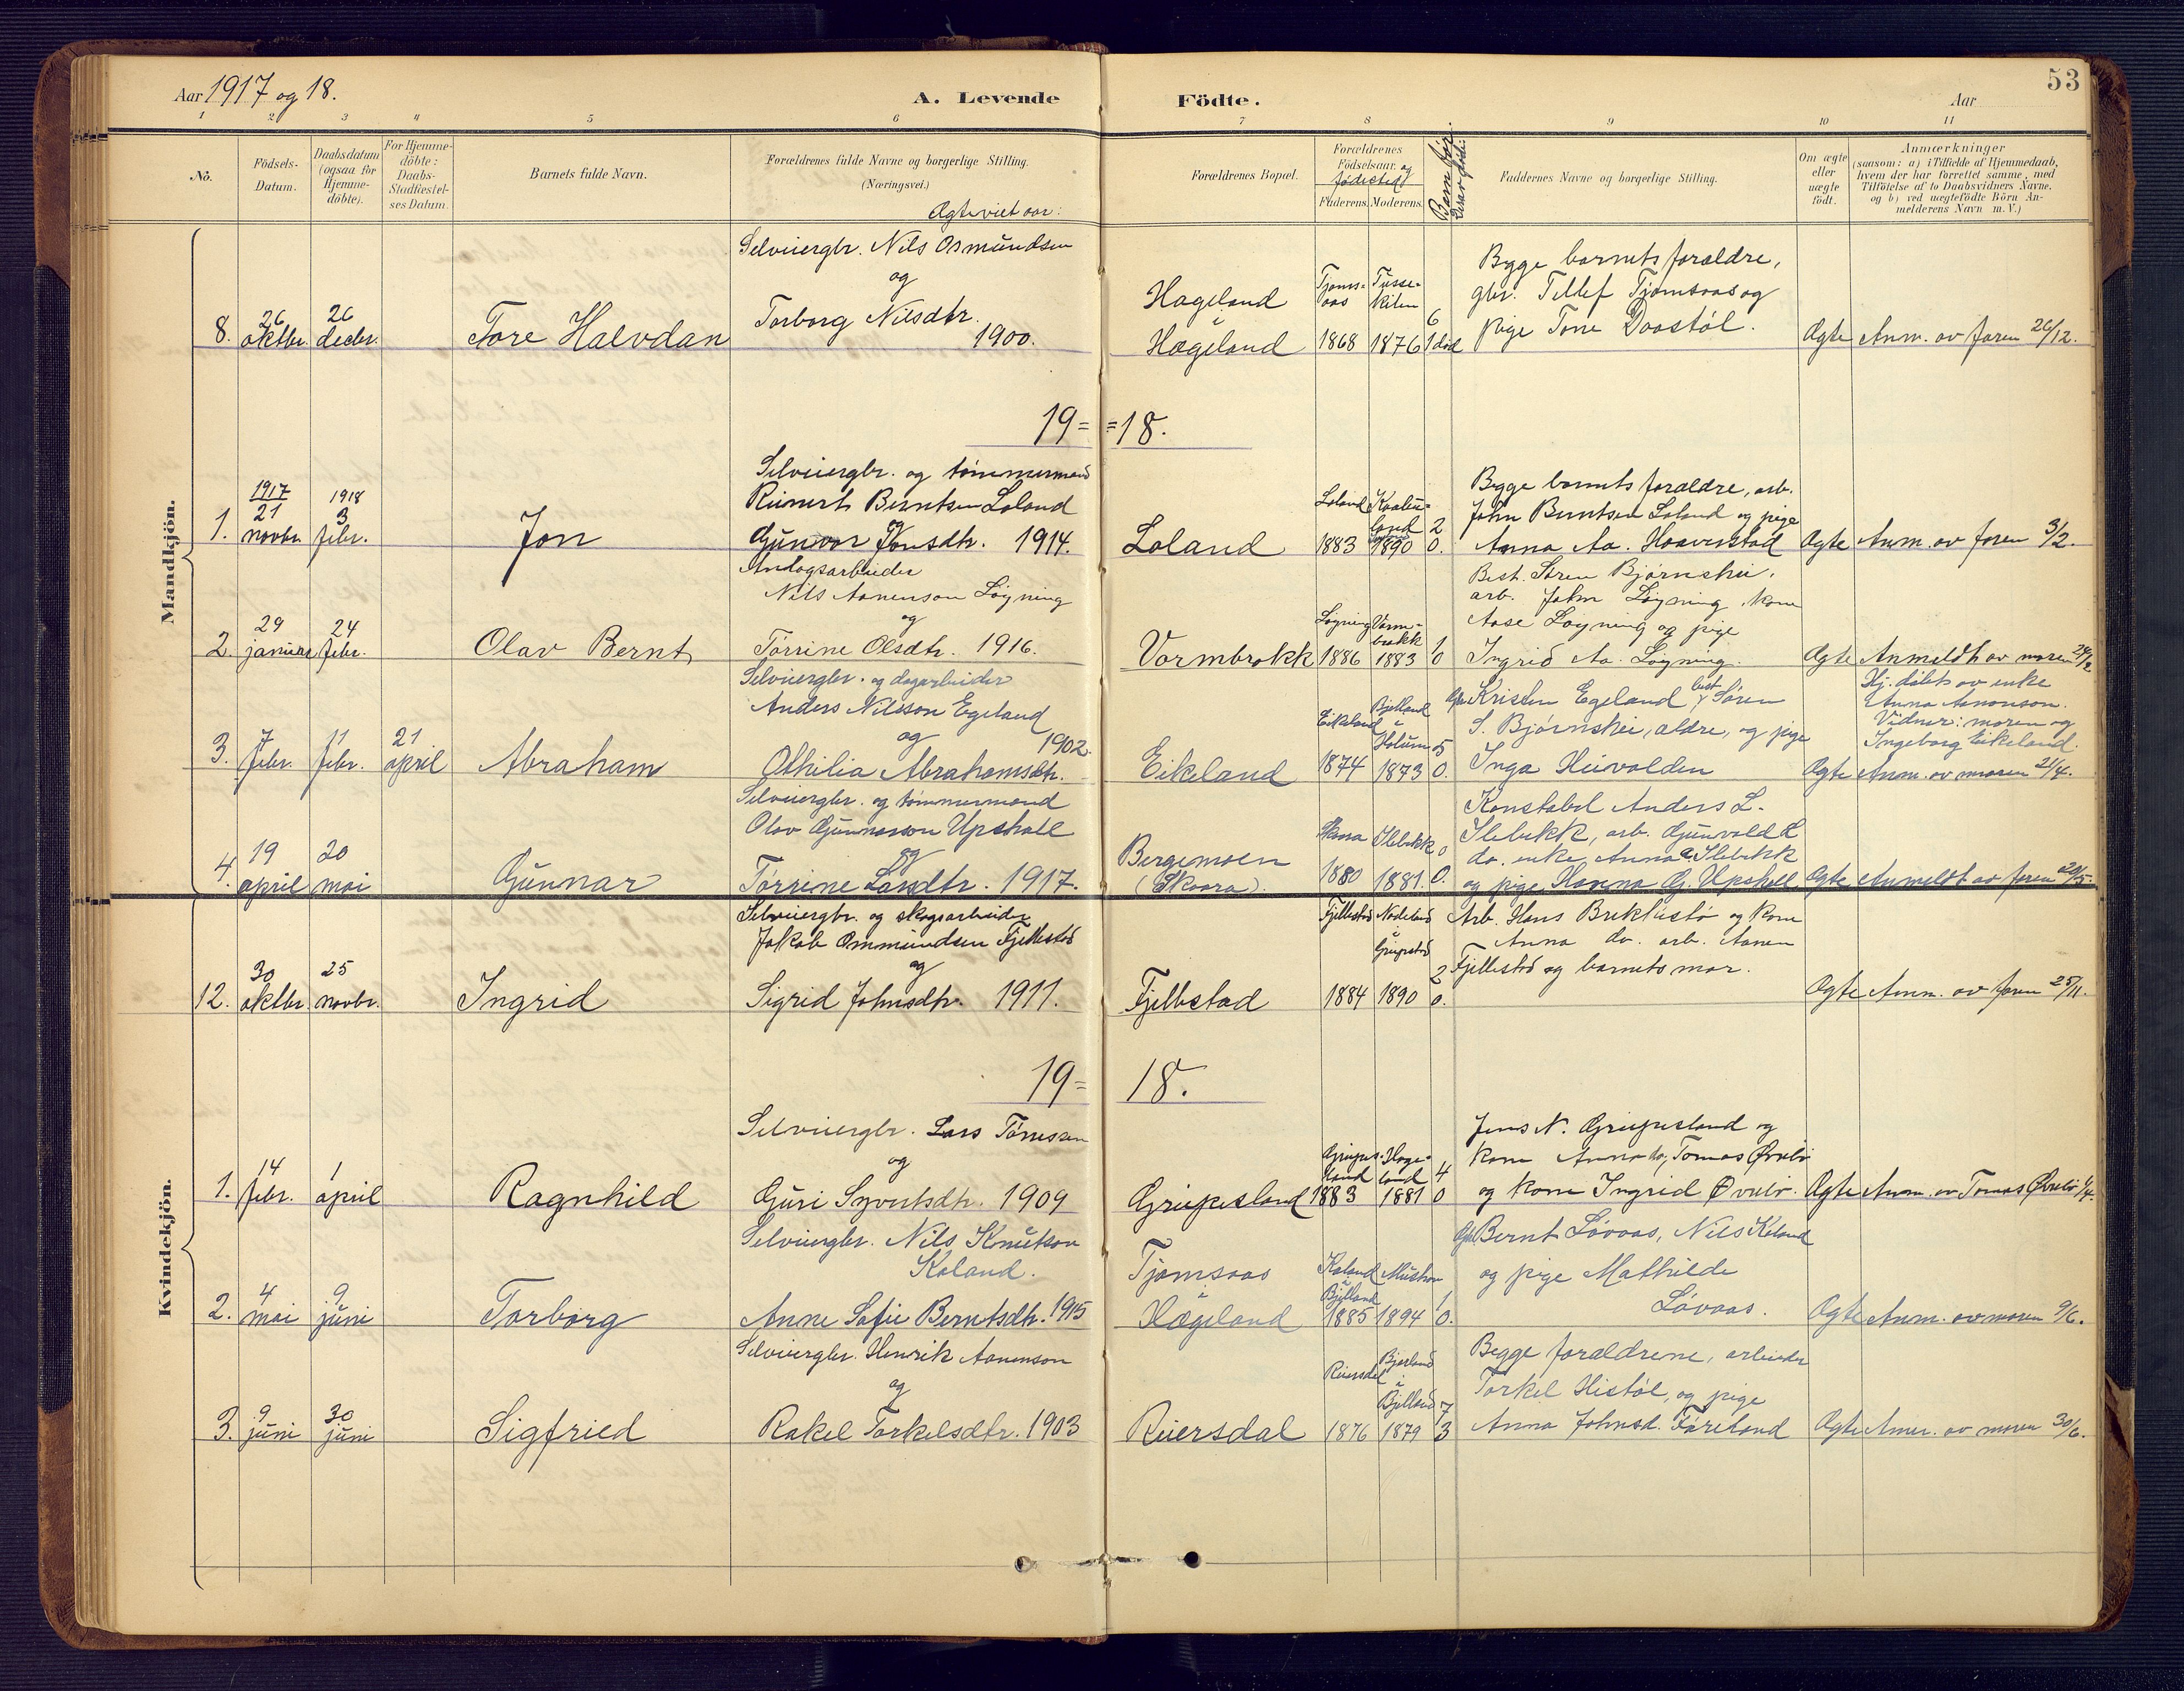 53
Aar 1917 og 18.
A. Levende Födte.
Aar
1 2 3 4 5 6 7 8 9 10 11
No.
Födsels-
Datum.
Daabsdatum
(ogsaa for
Hjemme-
döbte).
For Hjemme-
döbte:
Daabs-
Stadfæstel-
ses Datum.
Barnets fulde Navn.
Forældrenes fulde Navne og borgerlige Stilling.
(Næringsvei.)
Ægteviet aar:
Forældrenes Bopæl.
Forældrenes
Födselsaar. og
fødested
Faderens. Moderens.
Barn før.
Derav døde:
Faddernes Navne og borgerlige Stilling.
Om ægte
eller
uægte
födt.
Anmærkninger
(saasom: a) i Tilfælde af Hjemmedaab,
hvem der har forrettet samme, med
Tilföielse af to Daabsvidners Navne,
og b) ved uægtefödte Börn An-
melderens Navn m. V.)
Mandkjön.
8.
26
oktbr.
26
decbr.
Tore Halvdan
Selveiergbr. Nils Osmundsen
og
Torborg Nilsdtr.
1900.
Hageland
i
Hægeland
Tjoms-
aas
1868
Tusse-
kilen
1876
6
1 død
Begge barnets forældre,
gbr. Tellef Tjomsaas og
pige Tone Daastøl.
Ægte
Anm. av faren 26/12.
19= =18.
1.
1917
21
novbr.
1918
3
febr.
Jon
Selveiergbr. og tømmermand
Reinert Berntsen Loland
og
Gunvor Jonsdtr. 1914.
Loland
Loland
1883
1890
2
0.
Begge barnets forældre, arb.
John Berntsen Loland og pige
Anna Aa. Haaverstad
Ægte
Anm. av faren 3/2.
2.
29
januar
24
febr.
Olav Bernt
Anlægsarbeider
Nils Aanenson Løyning
og
Tørrine Olsdtr. 1916.
Vormbrokk
Løyning
1886
Vorm-
brokk
1883
1
0
Best. Søren Bjørnshei.
arb. John Løyning, kone
Aase Løyning og pige
Ingrid Aa. Løyning.
Ægte
Anmeldt av moren 24/2
3.
7
febr.
11
febr.
21
april
Abraham
Selveiergbr. og dagarbeider
Anders Nilsson Egeland
og 1902.
Othilia Abrahamsdtr.
Eikeland
Eikeland
1874
Bjelland
i
Holum
1873
5
0.
Gbr. Kristen Egeland, best. Søren
S. Bjørnshei, ældre, og pige
Inga Heivolden
Ægte
Hj. døbt av enke
Anna Aanonsen.
Vidner: moren og
Ingeborg Eikeland.
Anm. av moren 21/4.
4.
19
april
20
mai
Gunnar
Selveiergbr. og tømmermand
Olav Gunnarson Upstall
og
Tørrine Larsdtr. 1917.
Bergemoen
(Skaara).
Skaara
1880
Ilebekk
1881.
0
0.
Konstabel Anders L.
Ilebekk, arb. Gunvald L
do. enke Anna Ilebekk
og pige Hanna G. Upstall.
Ægte
Anmeldt av faren 20/5.
Kvindekjön.
12.
30
oktbr.
25
novbr.
Ingrid
Selveiergbr. og skogsarbeider
Jakob Ommundsen Fjellestad
og
Sigrid Johnsdtr. 1911.
Fjellestad
Fjellestad
1884
Nodeland
i
Greipstad
1890
2
0.
Arb. Hans Brekkestø og kone
Anna do. arb. Aanen
Fjellestad og barnets mor.
Ægte
Anm. av faren 25/11.
19= 18.
1.
14
febr.
1
april
Ragnhild
Selveiergbr. Lars Tørresen
og
Guri Syvertsdtr. 1909
Greipesland
Greipes-
land
1883
Hæge-
land
1881
4
0
Jens N. Greipesland og
kone Anna do, Tomas Øvrebø
og kone Ingrid Øvrebø.
Ægte
Anm. av Tomas Øvrebø 1/4.
2.
4
mai
9
juni
Torborg
Selveiergbr. Nils Knutson
Kaland.
Anne Sofie Berntsdtr. 1915
Tjomsaas
i
Hægeland
Kaland
Bjelland
1885
1894
1
0.
Gbr. Bernt Løvaas, Nils Kaland
og pige Mathilde
Løvaas.
Ægte
Anm. av moren 9/6.
3.
9
juni
30
juni
Sigfried
Selveiergbr. Henrik Aanenson
og
Rakel Torkelsdtr. 1903
Reiersdal
Reiersdal
1876
Bjærland
i
Bjelland
1879
7
3
Begge forældrene, arbeider
Torkel Histøl, og pige
Anna Johnsd. Føreland
Ægte
Anm. av moren 30/6.